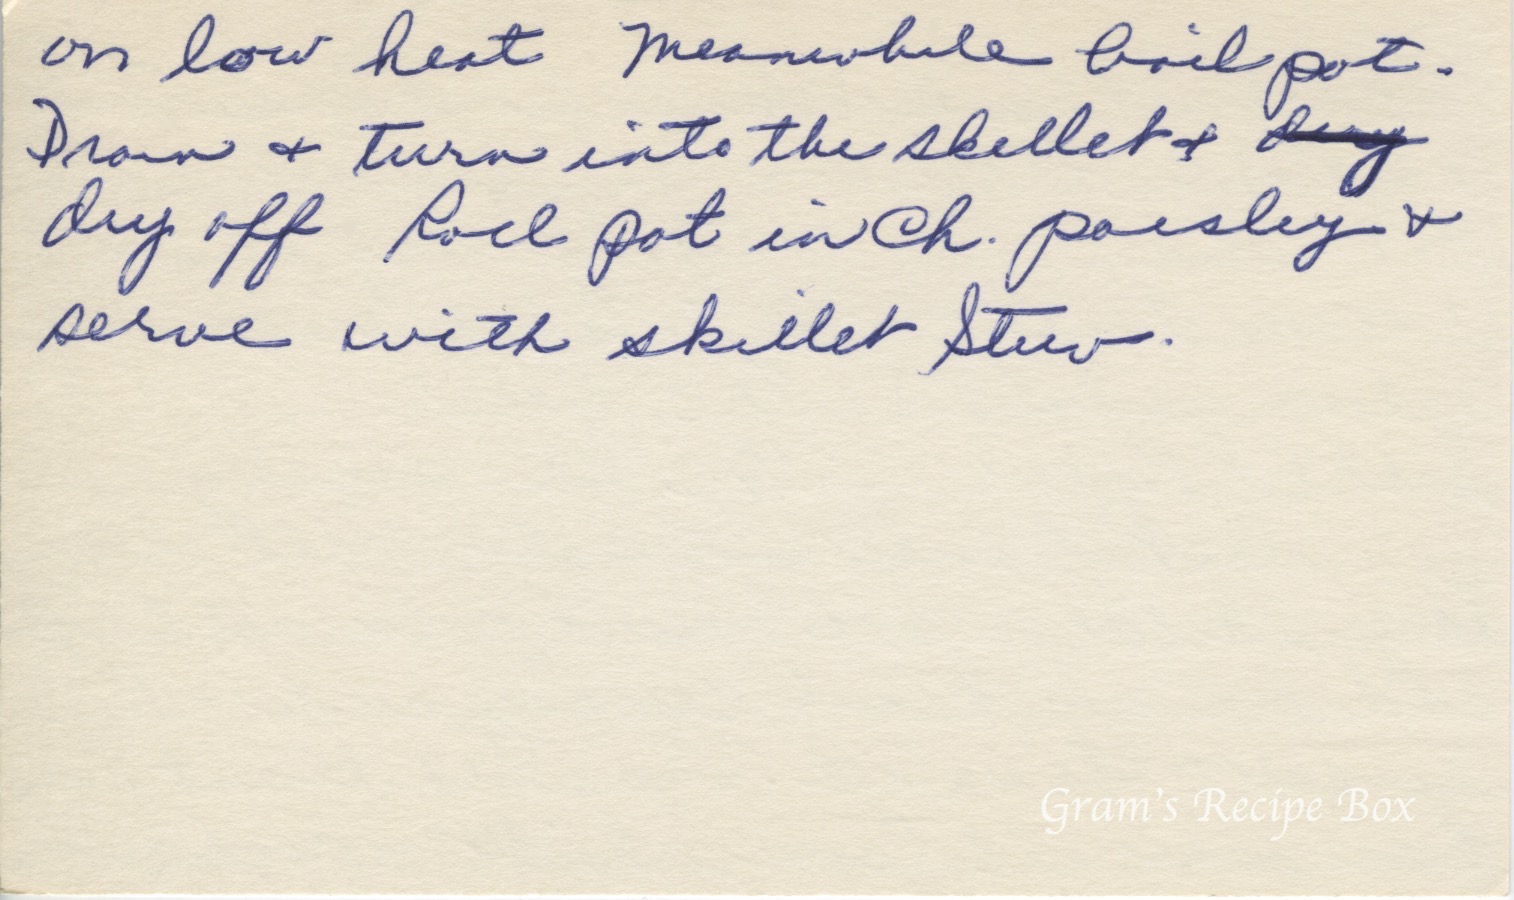 on low heat Meanwhile boil pot.
Drain & turn into the skillet & dry
dry off Roll pot in Ch. parsley &
serve with skillet Stew.
Gram's Recipe Box